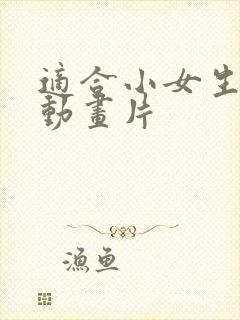 適合小女生
動畫片
漁魚